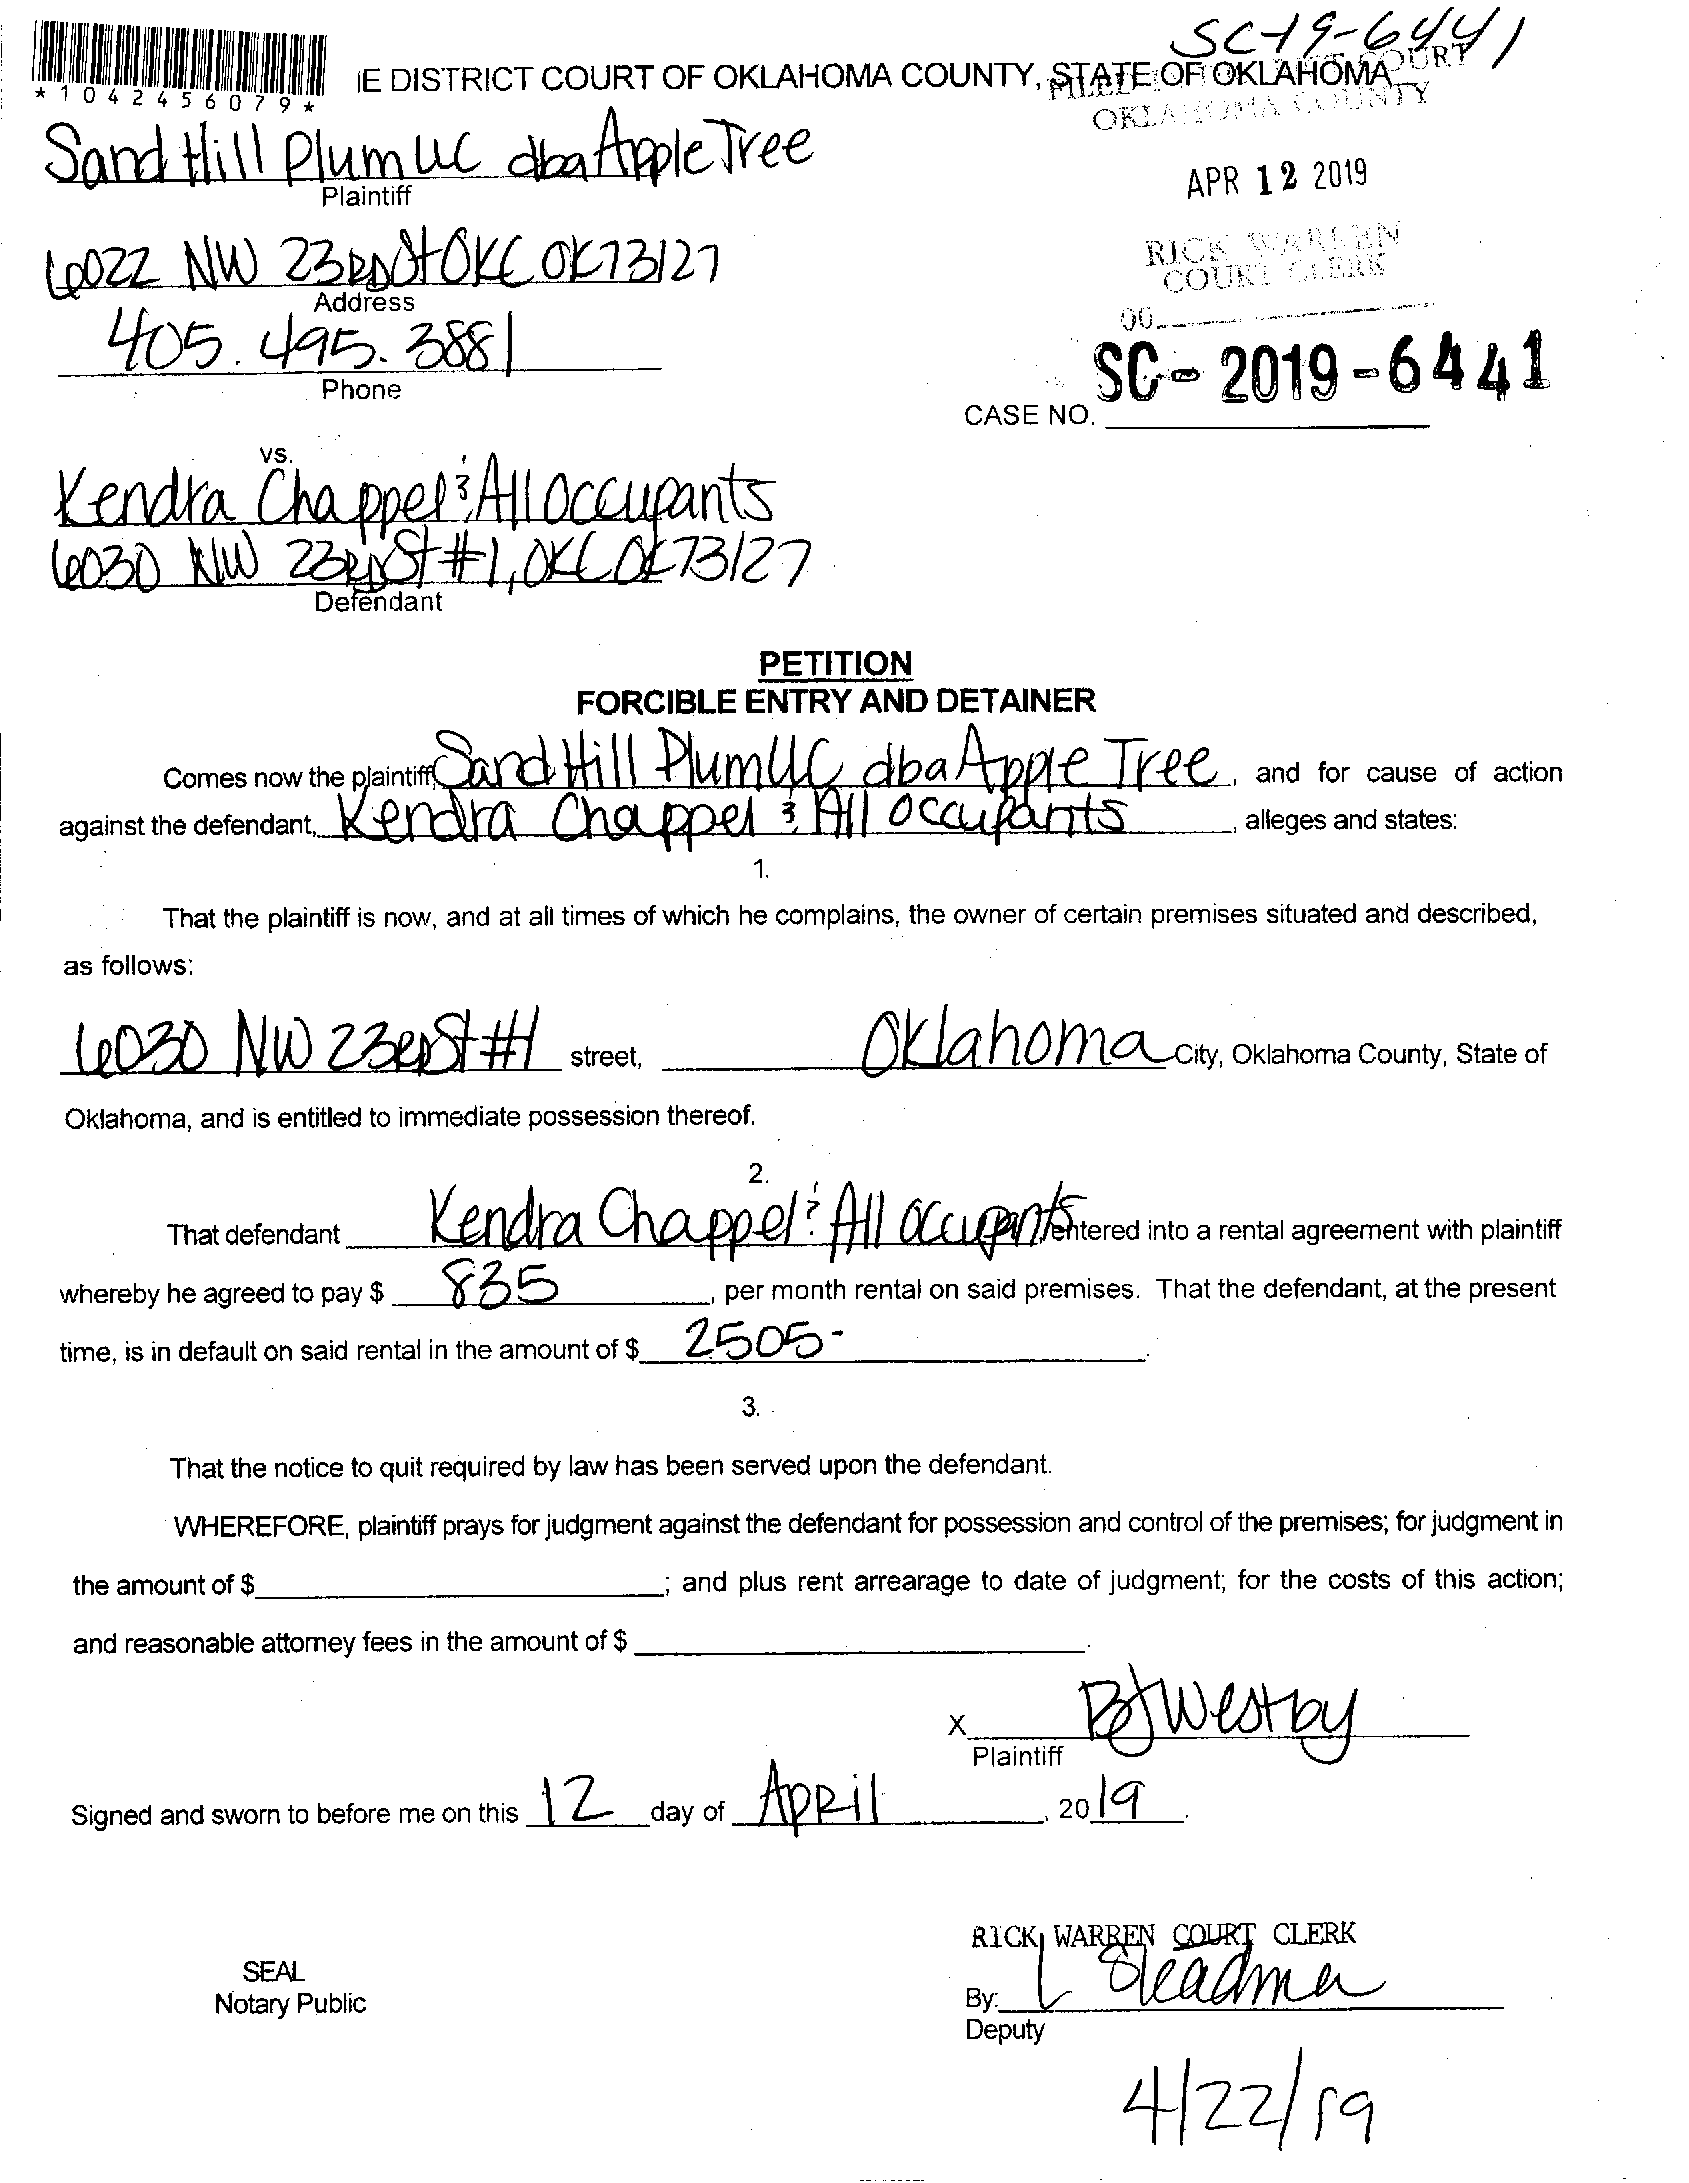 SC-19-6441
IE DISTRICT COURT OF OKLAHOMA COUNTY, STATE OF OKLAHOMA
*1042456079*
FILED COURT
OKLAHOMA COUNTY
Sand Hill Plum LLC dba Apple Tree
Plaintiff
APR 12 2019
6022 NW 23RD St OKC OK 73127
Address
RICK WARREN
COURT CLERK
405.495.3881
Phone
SC-2019-6441
CASE NO.
vs.
Kendra Chappel & All Occupants
6030 NW 23RD St #1, OKC OK 73127
Defendant
PETITION
FORCIBLE ENTRY AND DETAINER
Comes now the plaintiff, Sand Hill Plum LLC dba Apple Tree, and for cause of action
against the defendant, Kendra Chappel & All Occupants, alleges and states:
1.
That the plaintiff is now, and at all times of which he complains, the owner of certain premises situated and described,
as follows:
6030 NW 23RD St #1 street, Oklahoma City, Oklahoma County, State of
Oklahoma, and is entitled to immediate possession thereof.
2.
That defendant Kendra Chappel & All Occupants entered into a rental agreement with plaintiff
whereby he agreed to pay $ 835, per month rental on said premises. That the defendant, at the present
time, is in default on said rental in the amount of $ 2505-.
3.
That the notice to quit required by law has been served upon the defendant.
WHEREFORE, plaintiff prays for judgment against the defendant for possession and control of the premises; for judgment in
the amount of $ ; and plus rent arrearage to date of judgment; for the costs of this action;
and reasonable attorney fees in the amount of $ .
X BJ Westby
Plaintiff
Signed and sworn to before me on this 12 day of April, 2019.
RICK WARREN COURT CLERK
SEAL
Notary Public
By: L Steadman
Deputy
4/22/19